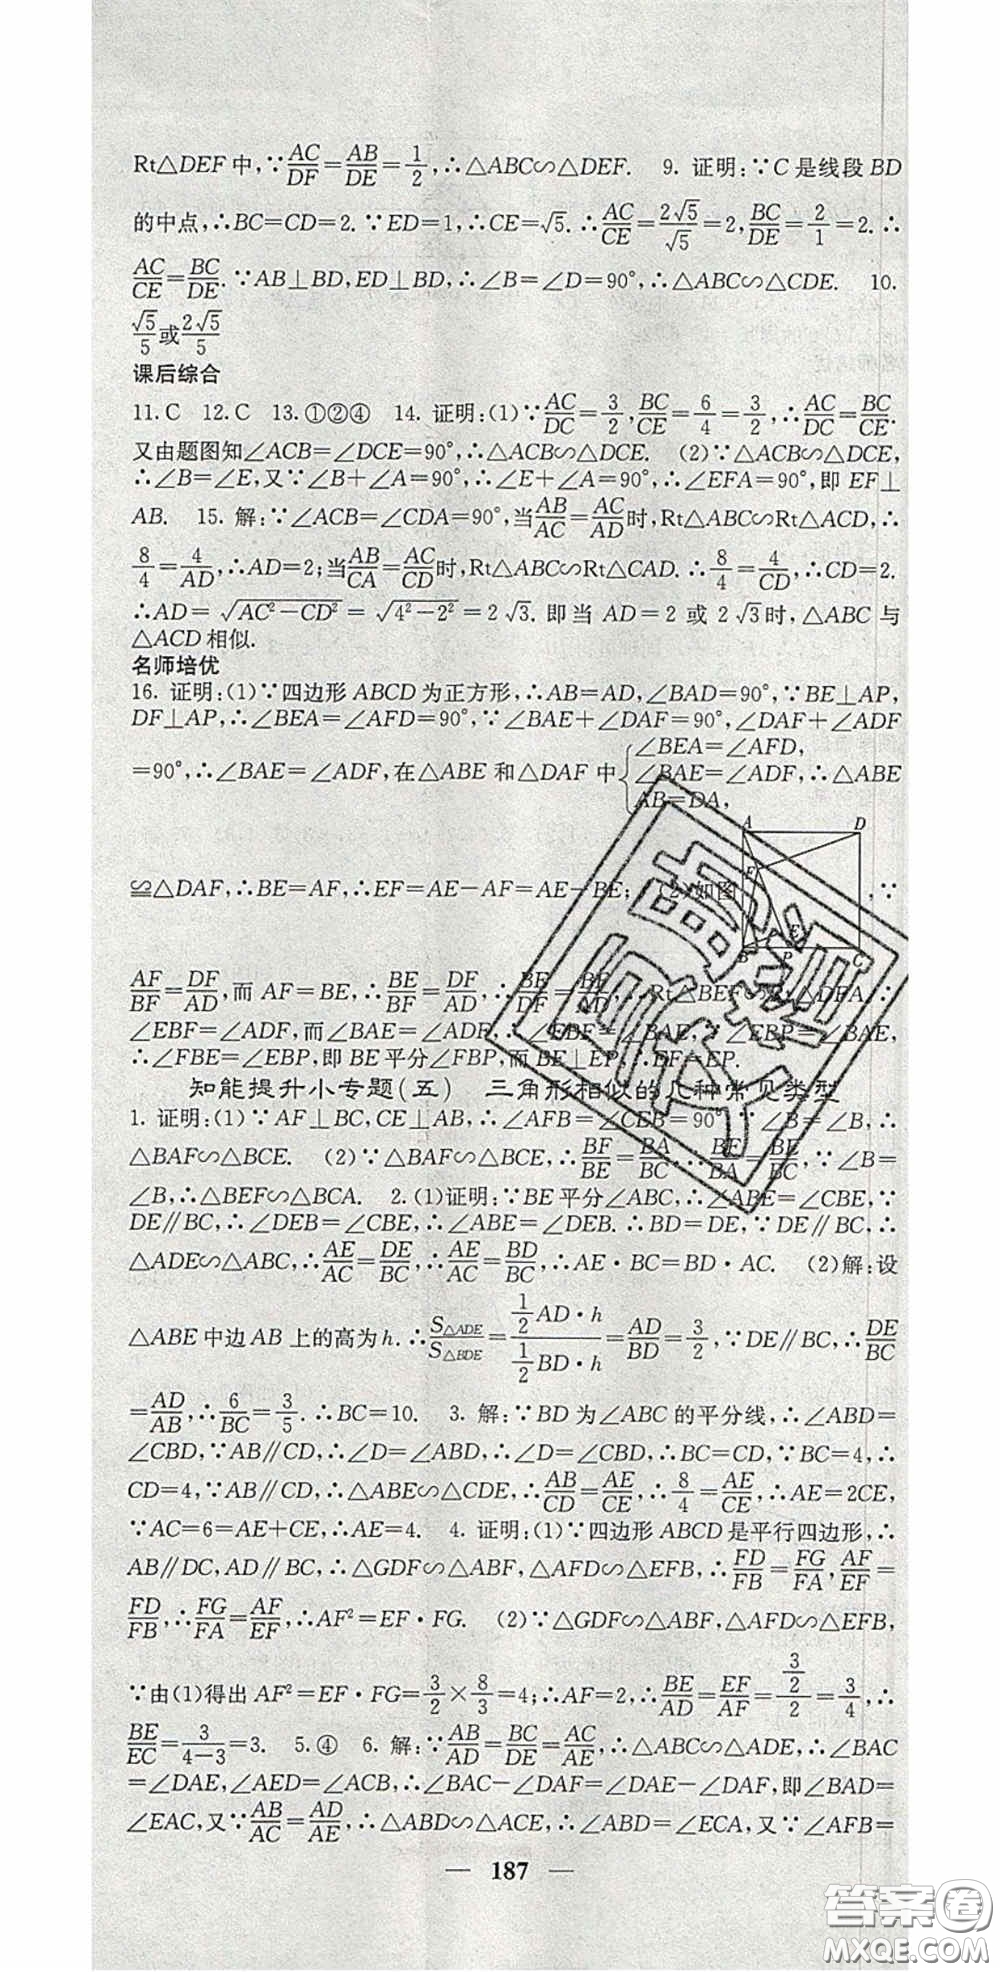 Rt△DEF中,∵AC/DF=AB/DE=1/2,∴△ABC∽△DEF. 9. 证明:∵C是线段BD
的中点,∴BC=CD=2.∵ED=1,∴CE=√5.∴AC/CE=2√5/√5=2,BC/DE=2/1=2.∴
AC/CE=BC/DE.∵AB⊥BD,ED⊥BD,∴∠B=∠D=90°,∴△ABC∽△CDE. 10.
√5/5或2√5/5
课后综合
11.C 12.C 13.①②④ 14. 证明:(1)∵AC/DC=3/2,BC/CE=6/4=3/2,∴AC/DC=BC/CE.
又由题图知∠ACB=∠DCE=90°,∴△ACB∽△DCE. (2)∵△ACB∽△DCE,
∴∠B=∠E,又∵∠B+∠A=90°,∴∠E+∠A=90°,∴∠EFA=90°,即 EF⊥
AB. 15. 解:∵∠ACB=∠CDA=90°,当AB/AC=AC/AD时,Rt△ABC∽Rt△ACD,∴
8/4=4/AD,∴AD=2;当AB/CA=AC/CD时,Rt△ABC∽Rt△CAD.∴8/4=4/CD,∴CD=2.
∴AD=√(AC²-CD²)=√(4²-2²)=2√3. 即当 AD=2 或 2√3时,△ABC 与
△ACD相似.
名师培优
16. 证明:(1)∵四边形ABCD为正方形,∴AB=AD,∠BAD=90°,∵BE⊥AP,
DF⊥AP,∴∠BEA=∠AFD=90°,∵∠BAE+∠DAF=90°,∠DAF+∠ADF
∠BEA=∠AFD,
=90°,∴∠BAE=∠ADF,在△ABE和△DAF中{∠BAE=∠ADF,∴△ABE
AB=DA,
A D
≌△DAF,∴BE=AF,∴EF=AE-AF=AE-BE; (2)如图 F E ,∵
B P C
AF/BF=DF/AD,而AF=BE,∴BE/BF=DF/AD,∴BE/DF=BF/AD,∴Rt△BEF∽Rt△DFA,∴
∠EBF=∠ADF,而∠BAE=∠ADF,∴∠EBF=∠BAE,∵∠EBP=∠BAE,
∴∠FBE=∠EBP,即BE平分∠FBP,而BE⊥EP,∴EF=EP.
知能提升小专题(五) 三角形相似的几种常见类型
1. 证明:(1)∵AF⊥BC,CE⊥AB,∴∠AFB=∠CEB=90°∵∠B=∠B,∴
△BAF∽△BCE. (2)∵△BAF∽△BCE,∴BF/BE=BA/BC,∴BE/BA=BF/BC,∵∠B=
∠B,∴△BEF∽△BCA. 2.(1)证明:∵BE平分∠ABC,∴∠ABE=∠CBE,∵
DE∥BC,∴∠DEB=∠CBE,∴∠ABE=∠DEB.∴BD=DE,∵DE∥BC,∴
△ADE∽△ABC,∴AE/AC=DE/BC,∴AE/AC=BD/BC,∴AE·BC=BD·AC. (2)解:设
△ABE中边AB上的高为h.∴S△ADE/S△BDE=(1/2 AD·h)/(1/2 BD·h)=AD/BD=3/2,∵DE∥BC,∴DE/BC
=AD/AB,∴6/BC=3/5.∴BC=10. 3. 解:∵BD为∠ABC的平分线,∴∠ABD=
∠CBD,∵AB∥CD,∴∠D=∠ABD,∴∠D=∠CBD,∴BC=CD,∵BC=4,∴
CD=4,∵AB∥CD,∴△ABE∽△CDE,∴AB/CD=AE/CE,∴8/4=AE/CE,∴AE=2CE,
∵AC=6=AE+CE,∴AE=4. 4. 证明:(1)∵四边形ABCD是平行四边形,∴
AB∥DC,AD∥BC,∴△GDF∽△ABF,△AFD∽△EFB,∴FD/FB=FG/FA,AF/EF=
FD/FB,∴FG/FA=AF/EF,∴AF²=EF·FG. (2)∵△GDF∽△ABF,△AFD∽△EFB,
∵由(1)得出AF²=EF·FG=3/2×8/3=4;∴AF=2,∴BE/AD=EF/AF=(3/2)/2=3/4,∴
BE/EC=3/(4-3)=3. 5.④ 6. 解:∵AB/AD=BC/DE=AC/AE,∴△ABC∽△ADE,∴∠BAC
=∠DAE,∠AED=∠ACB,∴∠BAC-∠DAF=∠DAE-∠DAF,即∠BAD=
∠EAC,又∵AB/AC=AD/AE,∴△ABD∽△ACE,∴∠ABD=∠ECA,又∵∠AFB=
— 187 —
答案圈
MXQE.COM